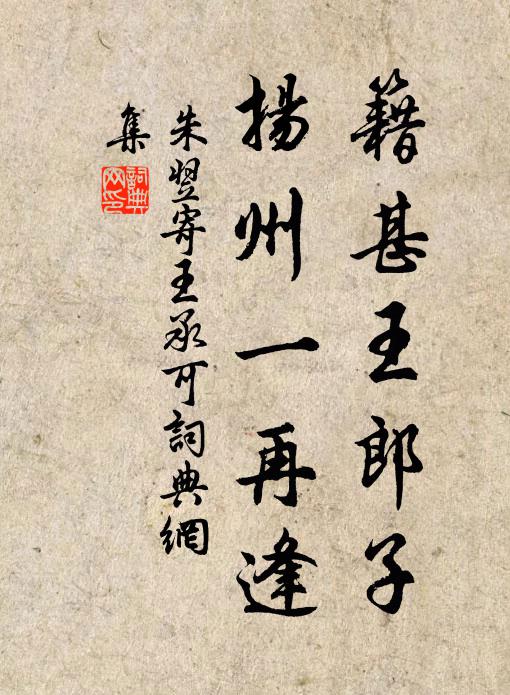 籍甚王郎子
揚州一再逢
朱翌寄王承可詞典網
集
詞典
网印